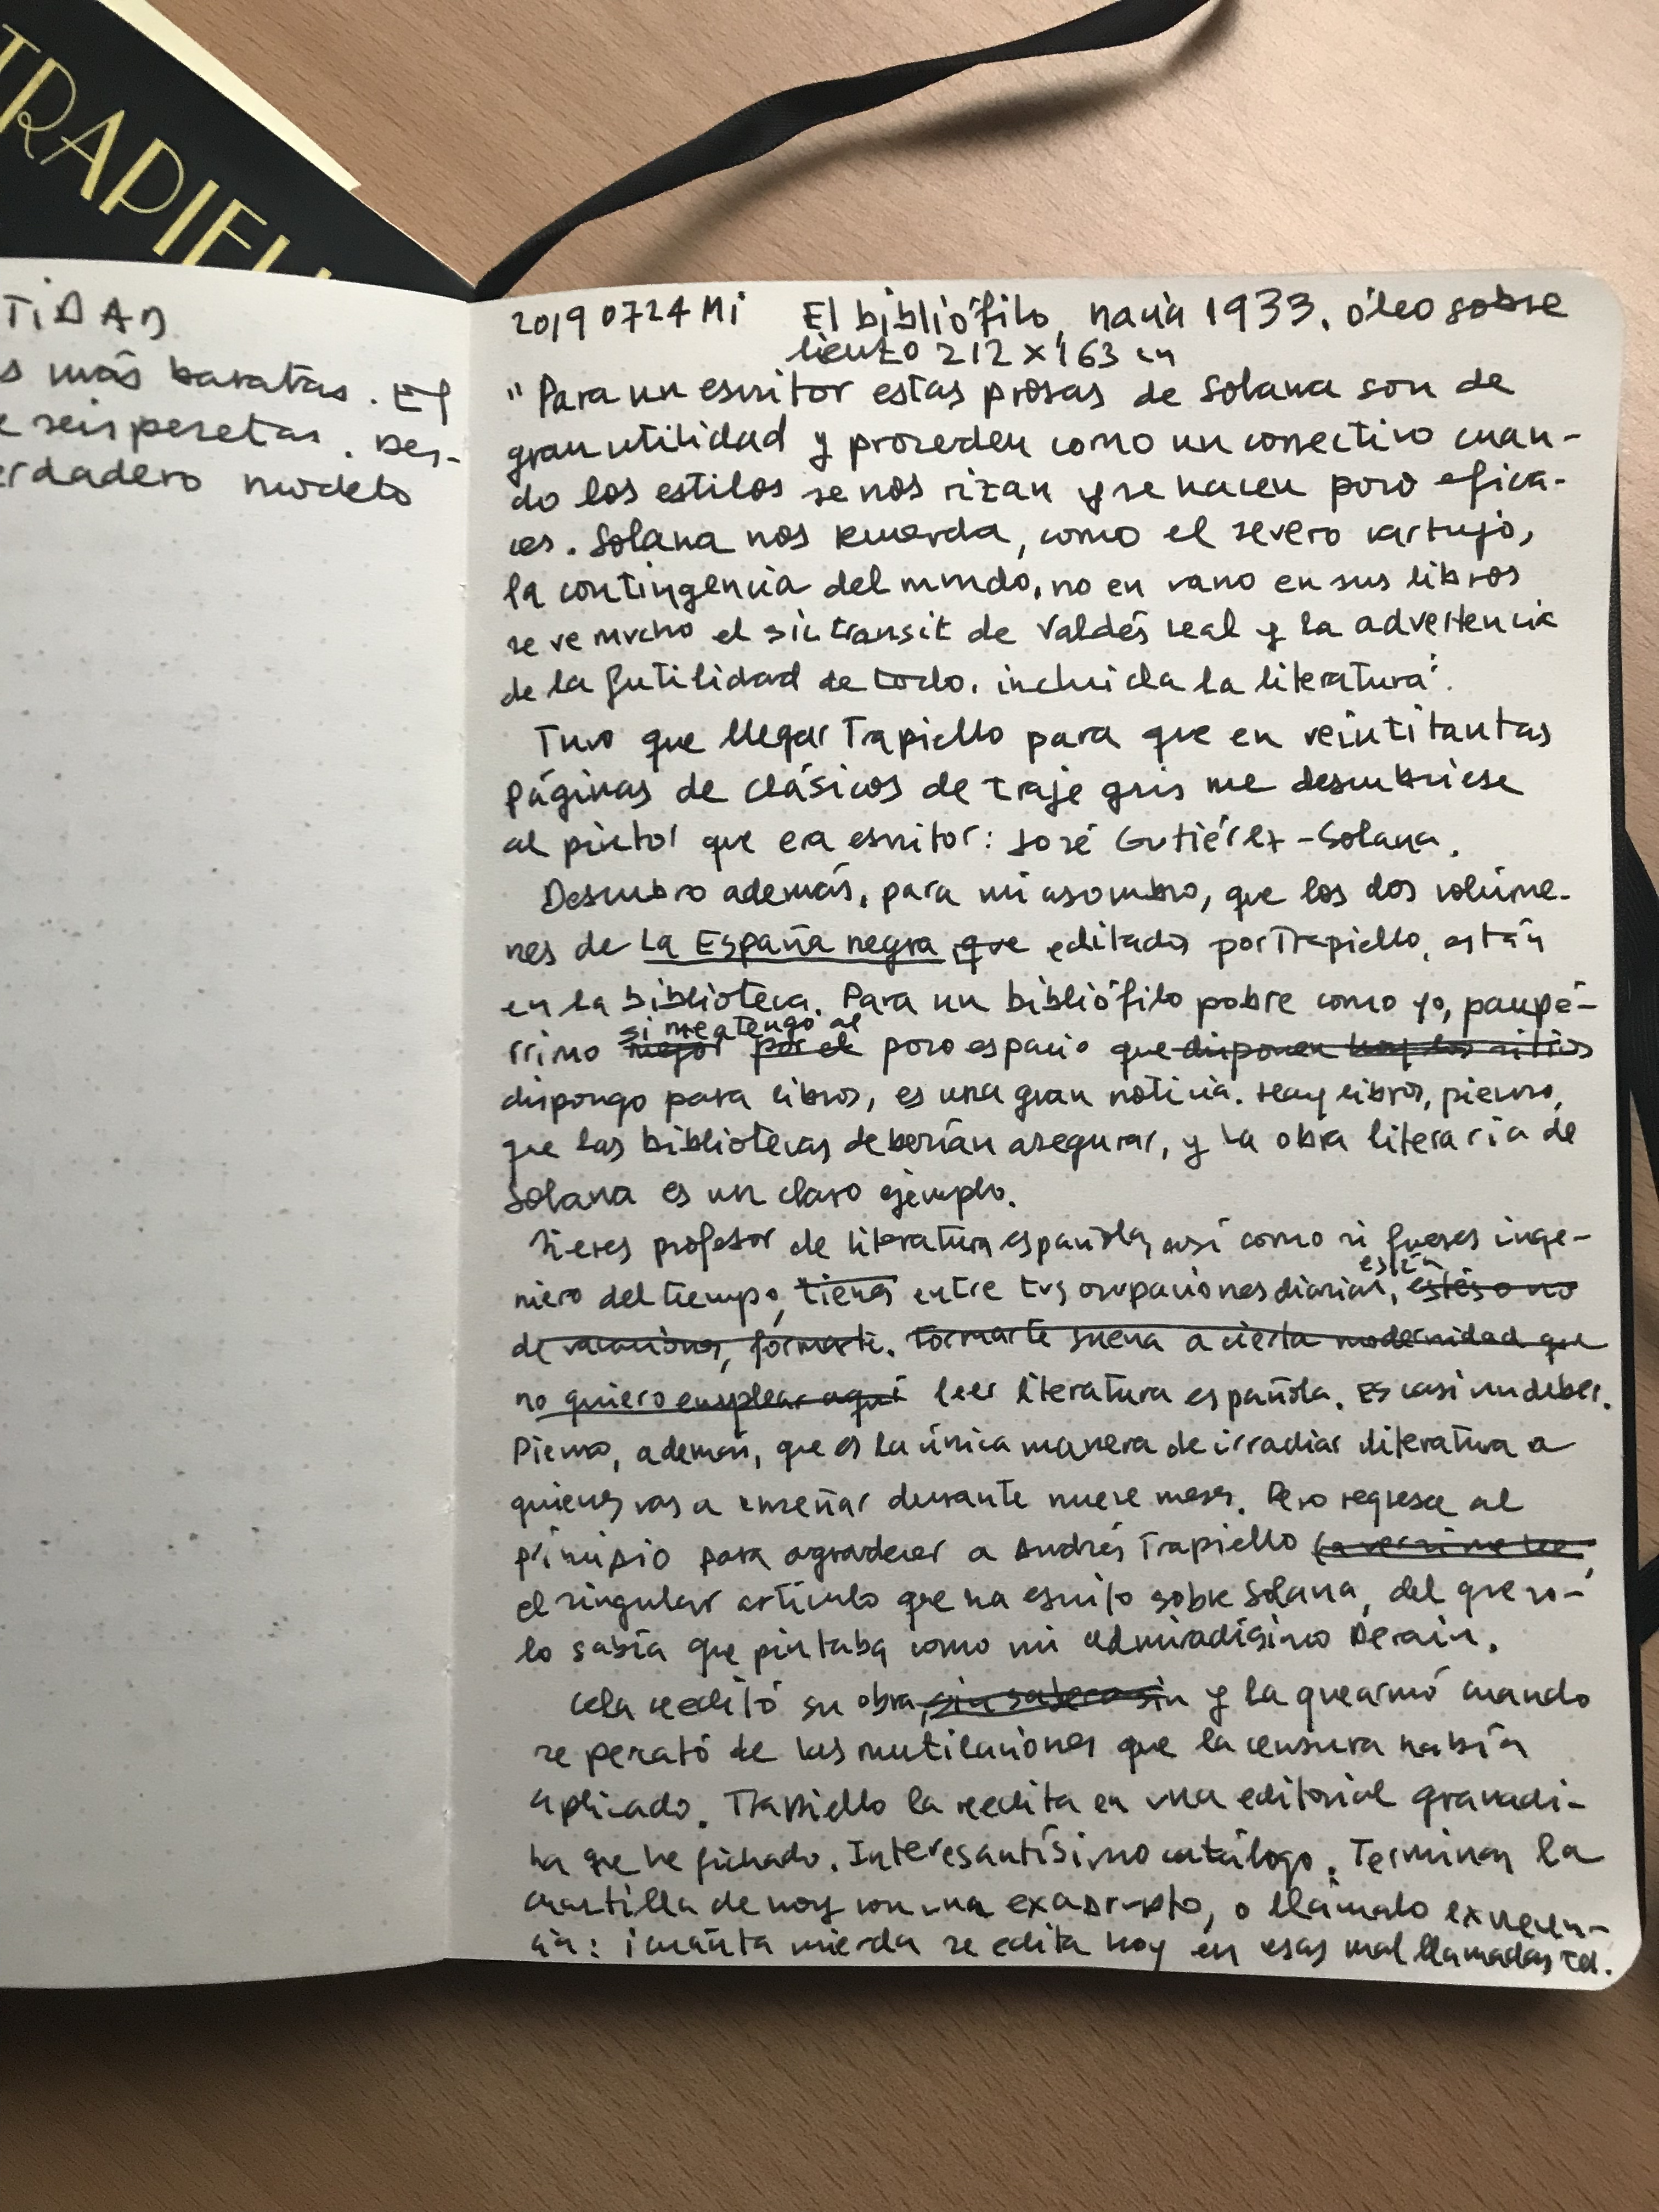 TRAPIELL
TIDAD
s más baratas. El
e seis pesetas. Des-
erdadero modelo
20190724Mi El bibliófilo, hacia 1933, óleo sobre
lienzo 212 x 163 cm
"Para un escritor estas prosas de Solana son de
gran utilidad y proceden como un correctivo cuan-
do los estilos se nos rizan y se hacen poco efica-
ces. Solana nos recuerda, como el severo cartujo,
la contingencia del mundo, no en vano en sus libros
se ve mucho el sic transit de Valdés Leal y la advertencia
de la futilidad de todo, incluida la literatura".
Tuvo que llegar Trapiello para que en veintitantas
páginas de clásicos de traje gris me descubriese
al pintor que era escritor: José Gutiérrez-Solana.
Descubro además, para mi asombro, que los dos volúme-
nes de La España negra, que editados por Trapiello, están
en la biblioteca. Para un bibliófilo pobre como yo, paupé-
si me atengo al
rrimo mejor por el poco espacio que disponen hoy los sitios
dispongo para libros, es una gran noticia. Hay libros, pienso,
que las bibliotecas deberían asegurar, y la obra literaria de
Solana es un claro ejemplo.
Si eres profesor de literatura española, así como si fueses inge-
están
niero del tiempo, tienes entre tus ocupaciones diarias, estés o no
de vacaciones, formarte. Formarte suena a cierta modernidad que
no quiero emplear aquí leer literatura española. Es casi un deber.
Pienso, además, que es la única manera de irradiar literatura a
quienes vas a enseñar durante nueve meses. Pero regrese al
principio para agradecer a Andrés Trapiello (a ver si me lee,
el singular artículo que ha escrito sobre Solana, del que só-
lo sabía que pintaba como mi admiradísimo Derain.
Cela reeditó su obra, sin saber sin y la quemó cuando
se percató de las mutilaciones que la censura había
aplicado. Trapiello la reedita en una editorial granadi-
na que he fichado. Interesantísimo catálogo. Terminar la
cuartilla de hoy con un exabrupto, o llámalo
: ¡cuánta mierda se edita hoy en esas mal llamadas